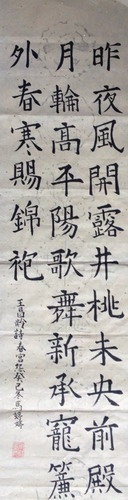 昨夜風開露井桃未央前殿
月輪高平陽歌舞新承寵簾
外春寒賜錦袍
王昌齡詩春宮怨癸巳冬馬